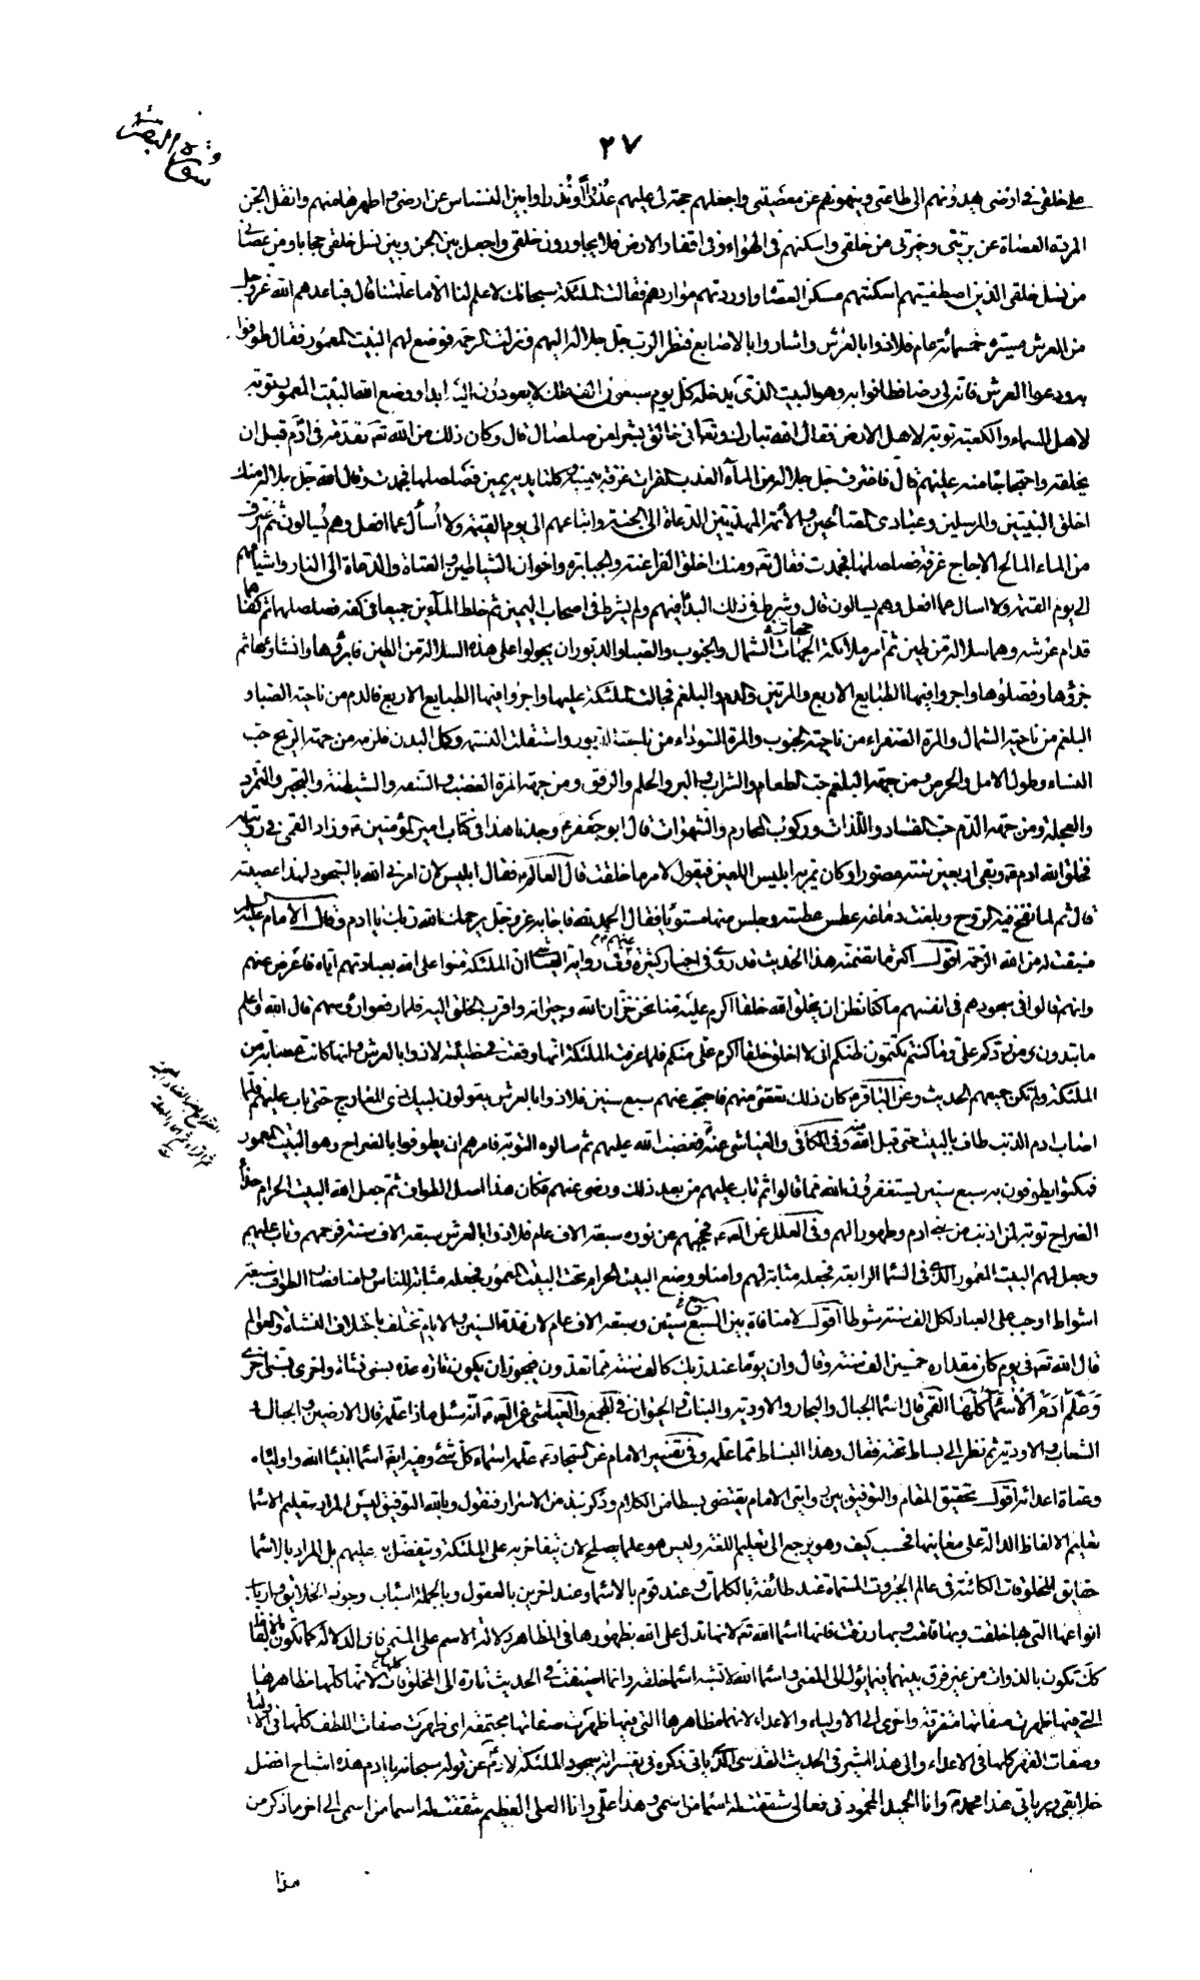 سورة البقرة
٢٧
على خلقى فى ارضى يهدونهم الى طاعتى وينهونهم عن معصيتى واجعلهم حجة لى عليهم عُذْراً اَوْ نُذْراً وابين النسناس عن ارضى واطهرها منهم وانقل الجن
المردة العصاة عن بريتى وخيرتى من خلقى واسكنهم فى الهواء وفى اقفار الارض فلا يجاورون خلقى واجعل بين الجن وبين نسل خلقى حجابا ومن عصانى
من نسل خلقى الذين اصطفيتهم اسكنتهم مسكن العصاة واوردتهم مواردهم فقالت الملئكة سبحانك لا علم لنا الا ما علمتنا قال فباعدهم الله عز وجل
من العرش مسيرة خمسمائة عام فلاذوا بالعرش واشاروا بالاصابع فنظر الرب جل جلاله اليهم ونزلت الرحمة فوضع لهم البيت المعمور فقال طوفوا
به ودعوا العرش فانه لى رضا فطافوا به وهو البيت الذى يدخله كل يوم سبعون الف ملك لا يعودون اليه ابدا ووضع الله البيت المعمور توبة
لاهل السماء والكعبة توبة لاهل الارض فقال الله تبارك وتعالى انى خالق بشرا من صلصال قال وكان ذلك من الله تعه تقدمة فى ادم قبل ان
يخلقه واحتجاجا منه عليهم قال فاغترف جل جلاله من الماء العذب الفرات غرفة بيمينه وكلتا يديه يمين فصلصلها فجمدت وقال الله جل جلاله منك
اخلق النبيين والمرسلين وعبادى الصالحين والائمة المهديين الدعاة الى الجنة واتباعهم الى يوم القيمة ولا اُسأل عما افعل وهم يُسألون ثم اغترف
من الماء المالح الاجاج غرفة فصلصلها فجمدت فقال تعه ومنك اخلق الفراعنة والجبابرة واخوان الشياطين والعتاة والدعاة الى النار واشياعهم
الى يوم القيمة ولا اسال عما افعل وهم يسالون قال وشرط فى ذلك البداء فيهم ولم يشرط فى اصحاب اليمين ثم خلط المائين جميعا فى كفه فصلصلهما ثم كفاهما
قدام عرشه وهما سلالة من طين ثم امر ملائكة الجهات الشمال والجنوب والصبا والدبور ان يجولوا على هذه السلالة من الطين فابرؤها وانشاؤها ثم
جزؤها وفصلوها واجروا فيها الطبايع الاربع والمرتين والدم والبلغم فجالت الملئكة عليها واجروا فيها الطبايع الاربع فالدم من ناحية الصبا و
البلغم من ناحية الشمال والمرة الصفراء من ناحية الجنوب والمرة السوداء من ناحية الدبور واستقلت النسمة وكمل البدن فلزمه من جهة الريح حب
النساء وطول الامل والحرص ومن جهة البلغم حب الطعام والشراب والبر والحلم والرفق ومن جهة المرة الغضب والسفه والشيطنة والتجبر والتمرد
والعجلة ومن جهة الدم حب الفساد واللذات وركوب المحارم والشهوات قال ابو جعفر ع وجدنا هذا فى كتاب امير المؤمنين ع وزاد القمى فى روايته
فخلق الله ادم ع وبقى اربعين سنة مصورا وكان يمر به ابليس اللعين فيقول لامر ما خلقت قال العالم ع فقال ابليس لان امرنى الله بالسجود لهذا عصيته
قال ثم لما نفخ فيه الروح وبلغت دماغه عطس عطسة وجلس منها مستويا فقال الحمد لله فاجابه عز وجل يرحمك الله ربك يا ادم وقال الامام عليه
فسبقت له من الله الرحمة اقول اكثر ما تضمنه هذا الحديث قد روى فى اخبار كثيرة وفى رواية العياشى ان الملئكة منوا على الله بعبادتهم اياه فاعرض عنهم
وانهم قالوا فى سجودهم فى انفسهم ما كنا نظن ان يخلق الله خلقا اكرم عليه منا نحن خزان الله وجيرانه واقرب الخلق اليه فلما رفعوا رؤسهم قال الله واعلم
ما تبدون من ردكم على وما كنتم تكتمون ظنكم انى لا اخلق خلقا اكرم على منكم فلما عرفت الملئكة انها وقعت فى خطيئة لاذوا بالعرش وانها كانت عصابة من
الملئكة ولم تكن جميعهم الحديث وعن الباقر ع كان ذلك تعقى منهم فاحتجب عنهم سبع سنين فلاذوا بالعرش يقولون لبيك ذى المعارج حتى تاب عليهم فلما
اصاب ادم الذنب طاف بالبيت حتى قبل الله منه وفى الكافى والعياشى عنه ع فغضب الله عليهم ثم سالوه التوبة فامرهم ان يطوفوا بالضراح وهو البيت المعمور
فمكثوا يطوفون به سبع سنين يستغفرون الله مما قالوا ثم تاب عليهم من بعد ذلك ورضى عنهم فكان هذا اصل الطواف ثم جعل الله البيت الحرام حذاء
الضراح توبة لمن اذنب من بنى ادم وطهورا لهم وفى العلل عن الصه ع فحجبهم عن نوره سبعة الاف عام فلاذوا بالعرش سبعة الاف سنة فرحمهم وتاب عليهم
وجعل لهم البيت المعمور الذى فى السماء الرابعة فجعله مثابة لهم وامنا ووضع البيت الحرام تحت البيت المعمور فجعله مثابة للناس وامنا فصار الطواف سبعة
اشواط اوجب على العباد لكل الف سنة شوطا اقول لا منافاة بين السبع سنين وسبعة الاف عام لان مدة السنين والايام تختلف باختلاف النشآت والعوالم
قال الله تعه فى يوم كان مقداره خمسين الف سنة وقال وان يوما عند ربك كالف سنة مما تعدون فيجوز ان يكون تارة عدة بسنى نشأة واخرى بسنى اخرى
وَعَلَّمَ اٰدَمَ الْاَسْمَاءَ كُلَّهَا القمى قال اسماء الجبال والبحار والاودية والنبات والحيوان فى المجمع والعياشى عن الصه ع انه سئل ماذا علمه قال الارضين والجبال و
الشعاب والاودية ثم نظر الى بساط تحته فقال وهذا البساط مما علمه وفى تفسير الامام عن السجاد ع علمه اسماء كل شئ وفيه ايضا اسماء انبياء الله واوليائه
وعتاة اعدائه اقول تحقيق المقام والتوفيق بين روايتى الامام يقتضى بسطا من الكلام وذكر نبذ من الاسرار فنقول وبالله التوفيق ليس المراد بتعليم الاسماء
تعليم الالفاظ الدالة على معانيها فحسب كيف وهو يرجع الى تعليم اللغة وليس هو علما يصلح لان يتفاخر به على الملئكة ويتفضل به عليهم بل المراد بالاسماء
حقايق المخلوقات الكائنة فى عالم الجبروت المسماة عند طائفة بالكلمات وعند قوم بالاسماء وعند اخرين بالعقول وبالجملة اسباب وجود الخلائق وارباب
انواعها التى بها خلقت وبها قامت وبها رزقت فانها اسماء الله تعه لانها تدل على الله بظهورها فى المظاهر دلالة الاسم على المسمى فان الدلالة كما تكون بالالفاظ
كذلك تكون بالذوات من غير فرق بينهما فيما يؤل الى المعنى واسماء الله لا تشبه اسماء خلقه وانما اضيفت فى الحديث تارة الى المخلوقات كلها لانها كلها مظاهرها
التى فيها ظهرت صفاتها متفرقة واخرى الى الاولياء والاعداء لانهما مظاهرها التى فيها ظهرت صفاتها مجتمعة اى ظهرت صفات اللطف كلها فى الاولياء
وصفات القهر كلها فى الاعداء والى هذا اشير فى الحديث القدسى الذى ياتى ذكره فى تفسير اية سجود الملئكة لادم ع من قوله سبحانه يا ادم هذه اشباح افضل
خلايقى وبرياتى هذا محمد ص وانا الحميد المحمود فى فعالى شققت له اسما من اسمى وهذا على وانا العلى العظيم شققت له اسما من اسمى الى اخر ما ذكر من
هذا